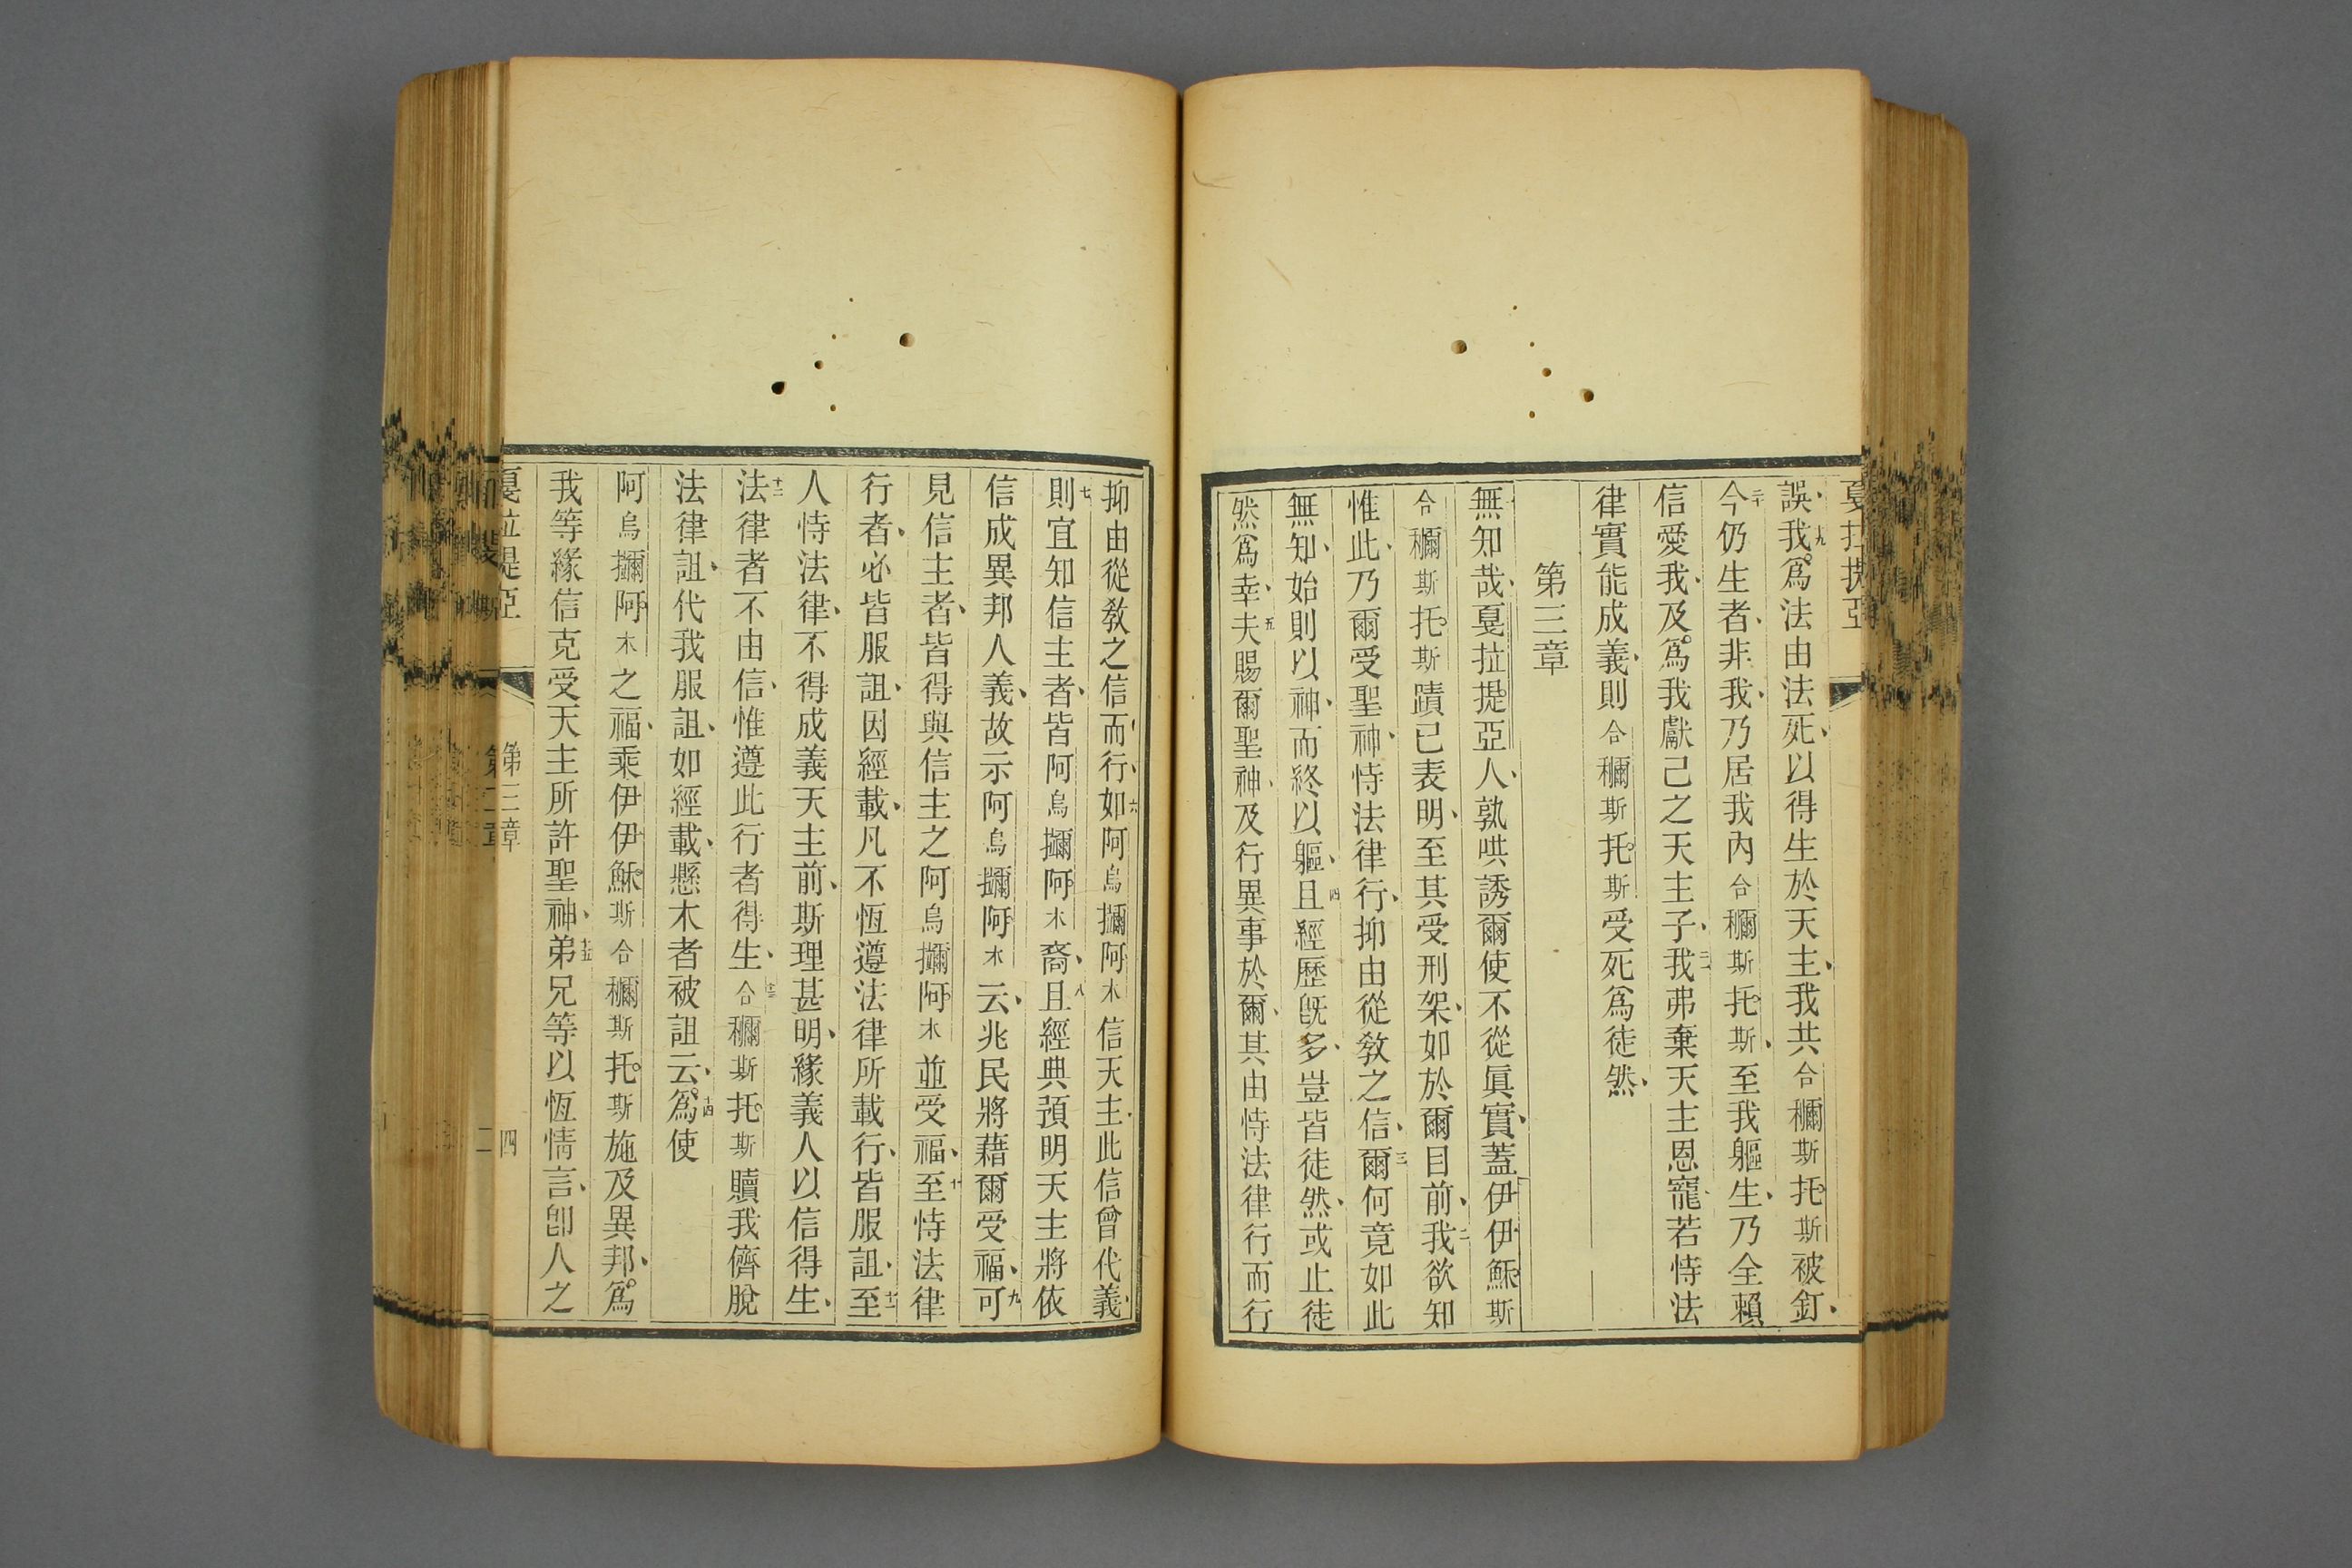 戛拉提亞
誤、我爲法由法死、以得生於天主、我共合穪斯托斯被釘、
今仍生者、非我、乃居我內合穪斯托斯、至我軀生、乃全賴
信愛我、及爲我獻己之天主子、我弗棄天主恩寵、若恃法
律實能成義、則合穪斯托斯受死爲徒然、
第三章
無知哉、戛拉提亞人、孰哄誘爾使不從眞實、蓋伊伊穌斯
合穪斯托斯蹟已表明、至其受刑架、如於爾目前、我欲知
惟此、乃爾受聖神、恃法律行、抑由從敎之信、爾何竟如此
無知、始則以神、而終以軀、且經歷旣多、豈皆徒然、或止徒
然爲幸、夫賜爾聖神、及行異事於爾、其由恃法律行而行
抑由從敎之信而行、如阿烏攡阿木信天主、此信曾代義、
則宜知信主者、皆阿烏攡阿木裔、且經典預明天主將依
信成異邦人義、故示阿烏攡阿木云、兆民將藉爾受福、可
見信主者、皆得與信主之阿烏攡阿木並受福、至恃法律
行者、必皆服詛、因經載、凡不恆遵法律所載行、皆服詛、至
人恃法律、不得成義天主前、斯理甚明、緣義人以信得生、
法律者不由信、惟遵此行者得生、合穪斯托斯贖我儕脫
法律詛、代我服詛、如經載、懸木者被詛云、爲使
阿烏攡阿木之福、乘伊伊穌斯合穪斯托斯施及異邦、爲
我等緣信克受天主所許聖神、弟兄等以恆情言、卽人之
戛拉提亞
第三章
四